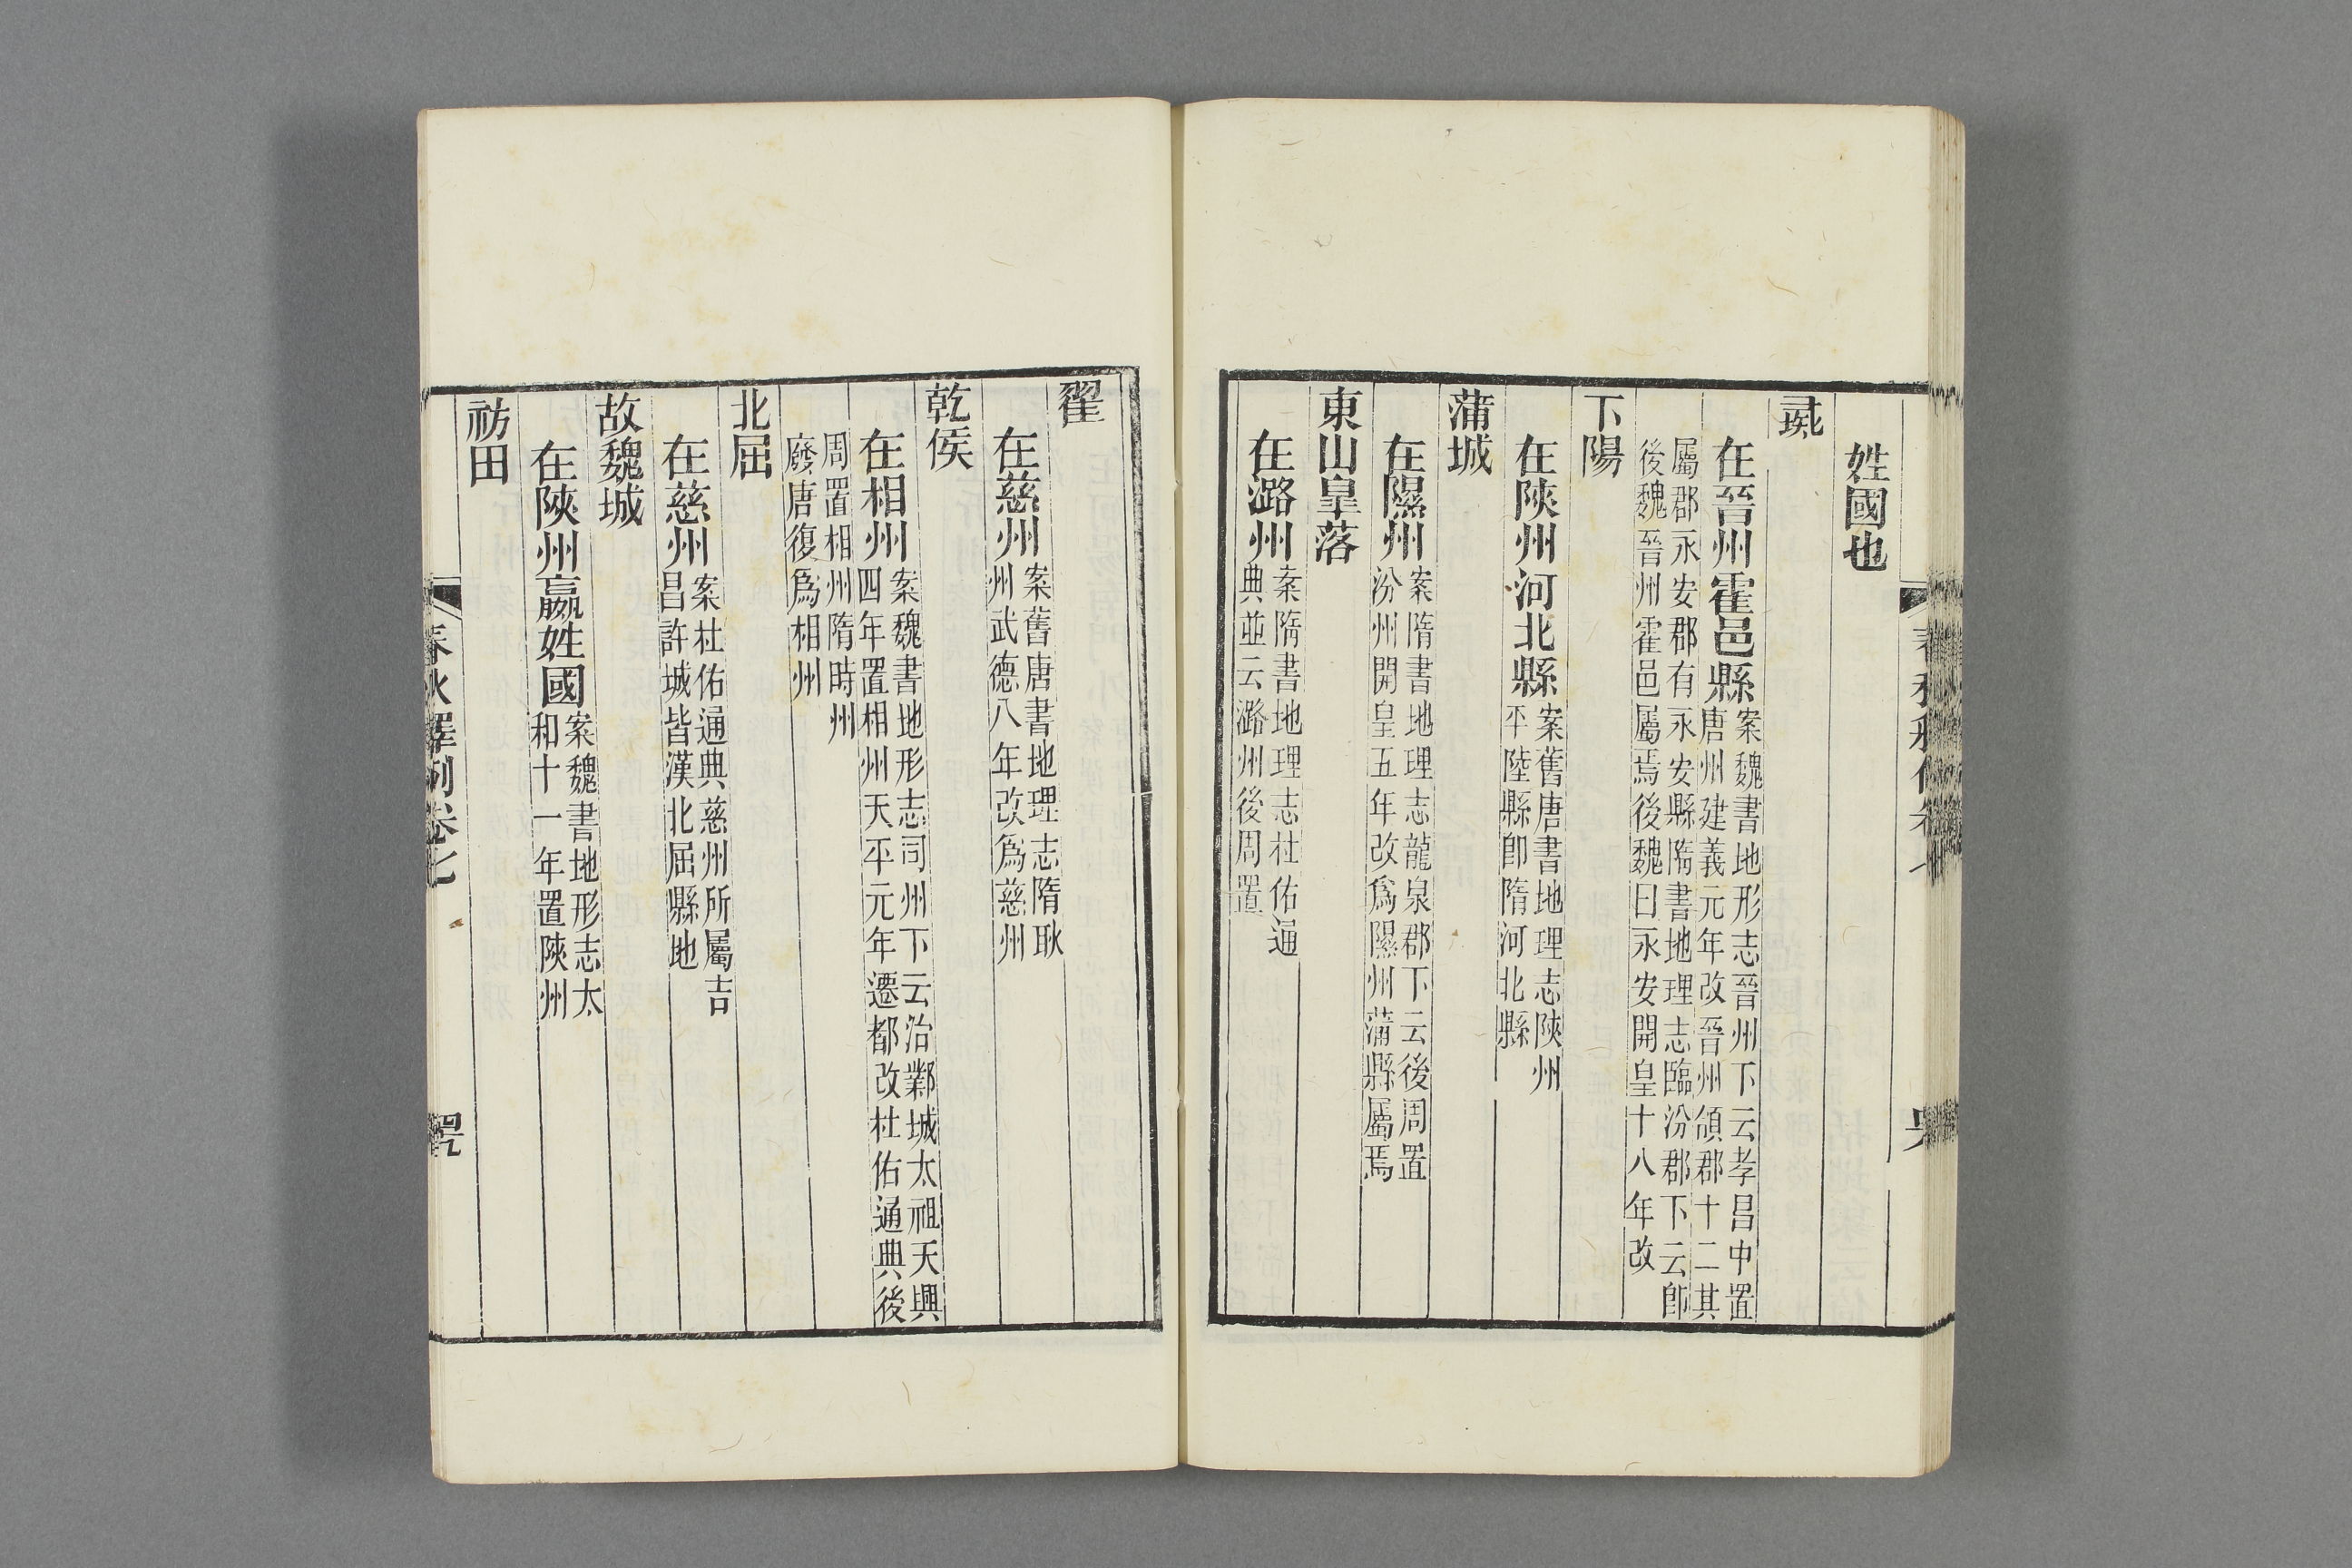 姓國也
彘
在晉州霍邑縣案魏書地形志晉州下云孝昌中置
唐州建義元年改晉州領郡十二其
屬郡永安郡有永安縣隋書地理志臨汾郡下云卽
後魏晉州霍邑屬焉後魏曰永安開皇十八年改
下陽
在陝州河北縣案舊唐書地理志陝州
平陸縣卽隋河北縣
蒲城
在隰州案隋書地理志龍泉郡下云後周置
汾州開皇五年改爲隰州蒲縣屬焉
東山皐落
在潞州案隋書地理志杜佑通
典並云潞州後周置
翟
在慈州案舊唐書地理志隋耿
州武德八年改爲慈州
乾侯
在相州案魏書地形志司州下云治鄴城太祖天興
四年置相州天平元年遷都改杜佑通典後
周置相州隋時州
廢唐復爲相州
北屈
在慈州案杜佑通典慈州所屬吉
昌許城皆漢北屈縣地
故魏城
在陝州嬴姓國案魏書地形志太
和十一年置陝州
祊田
春秋釋例卷七